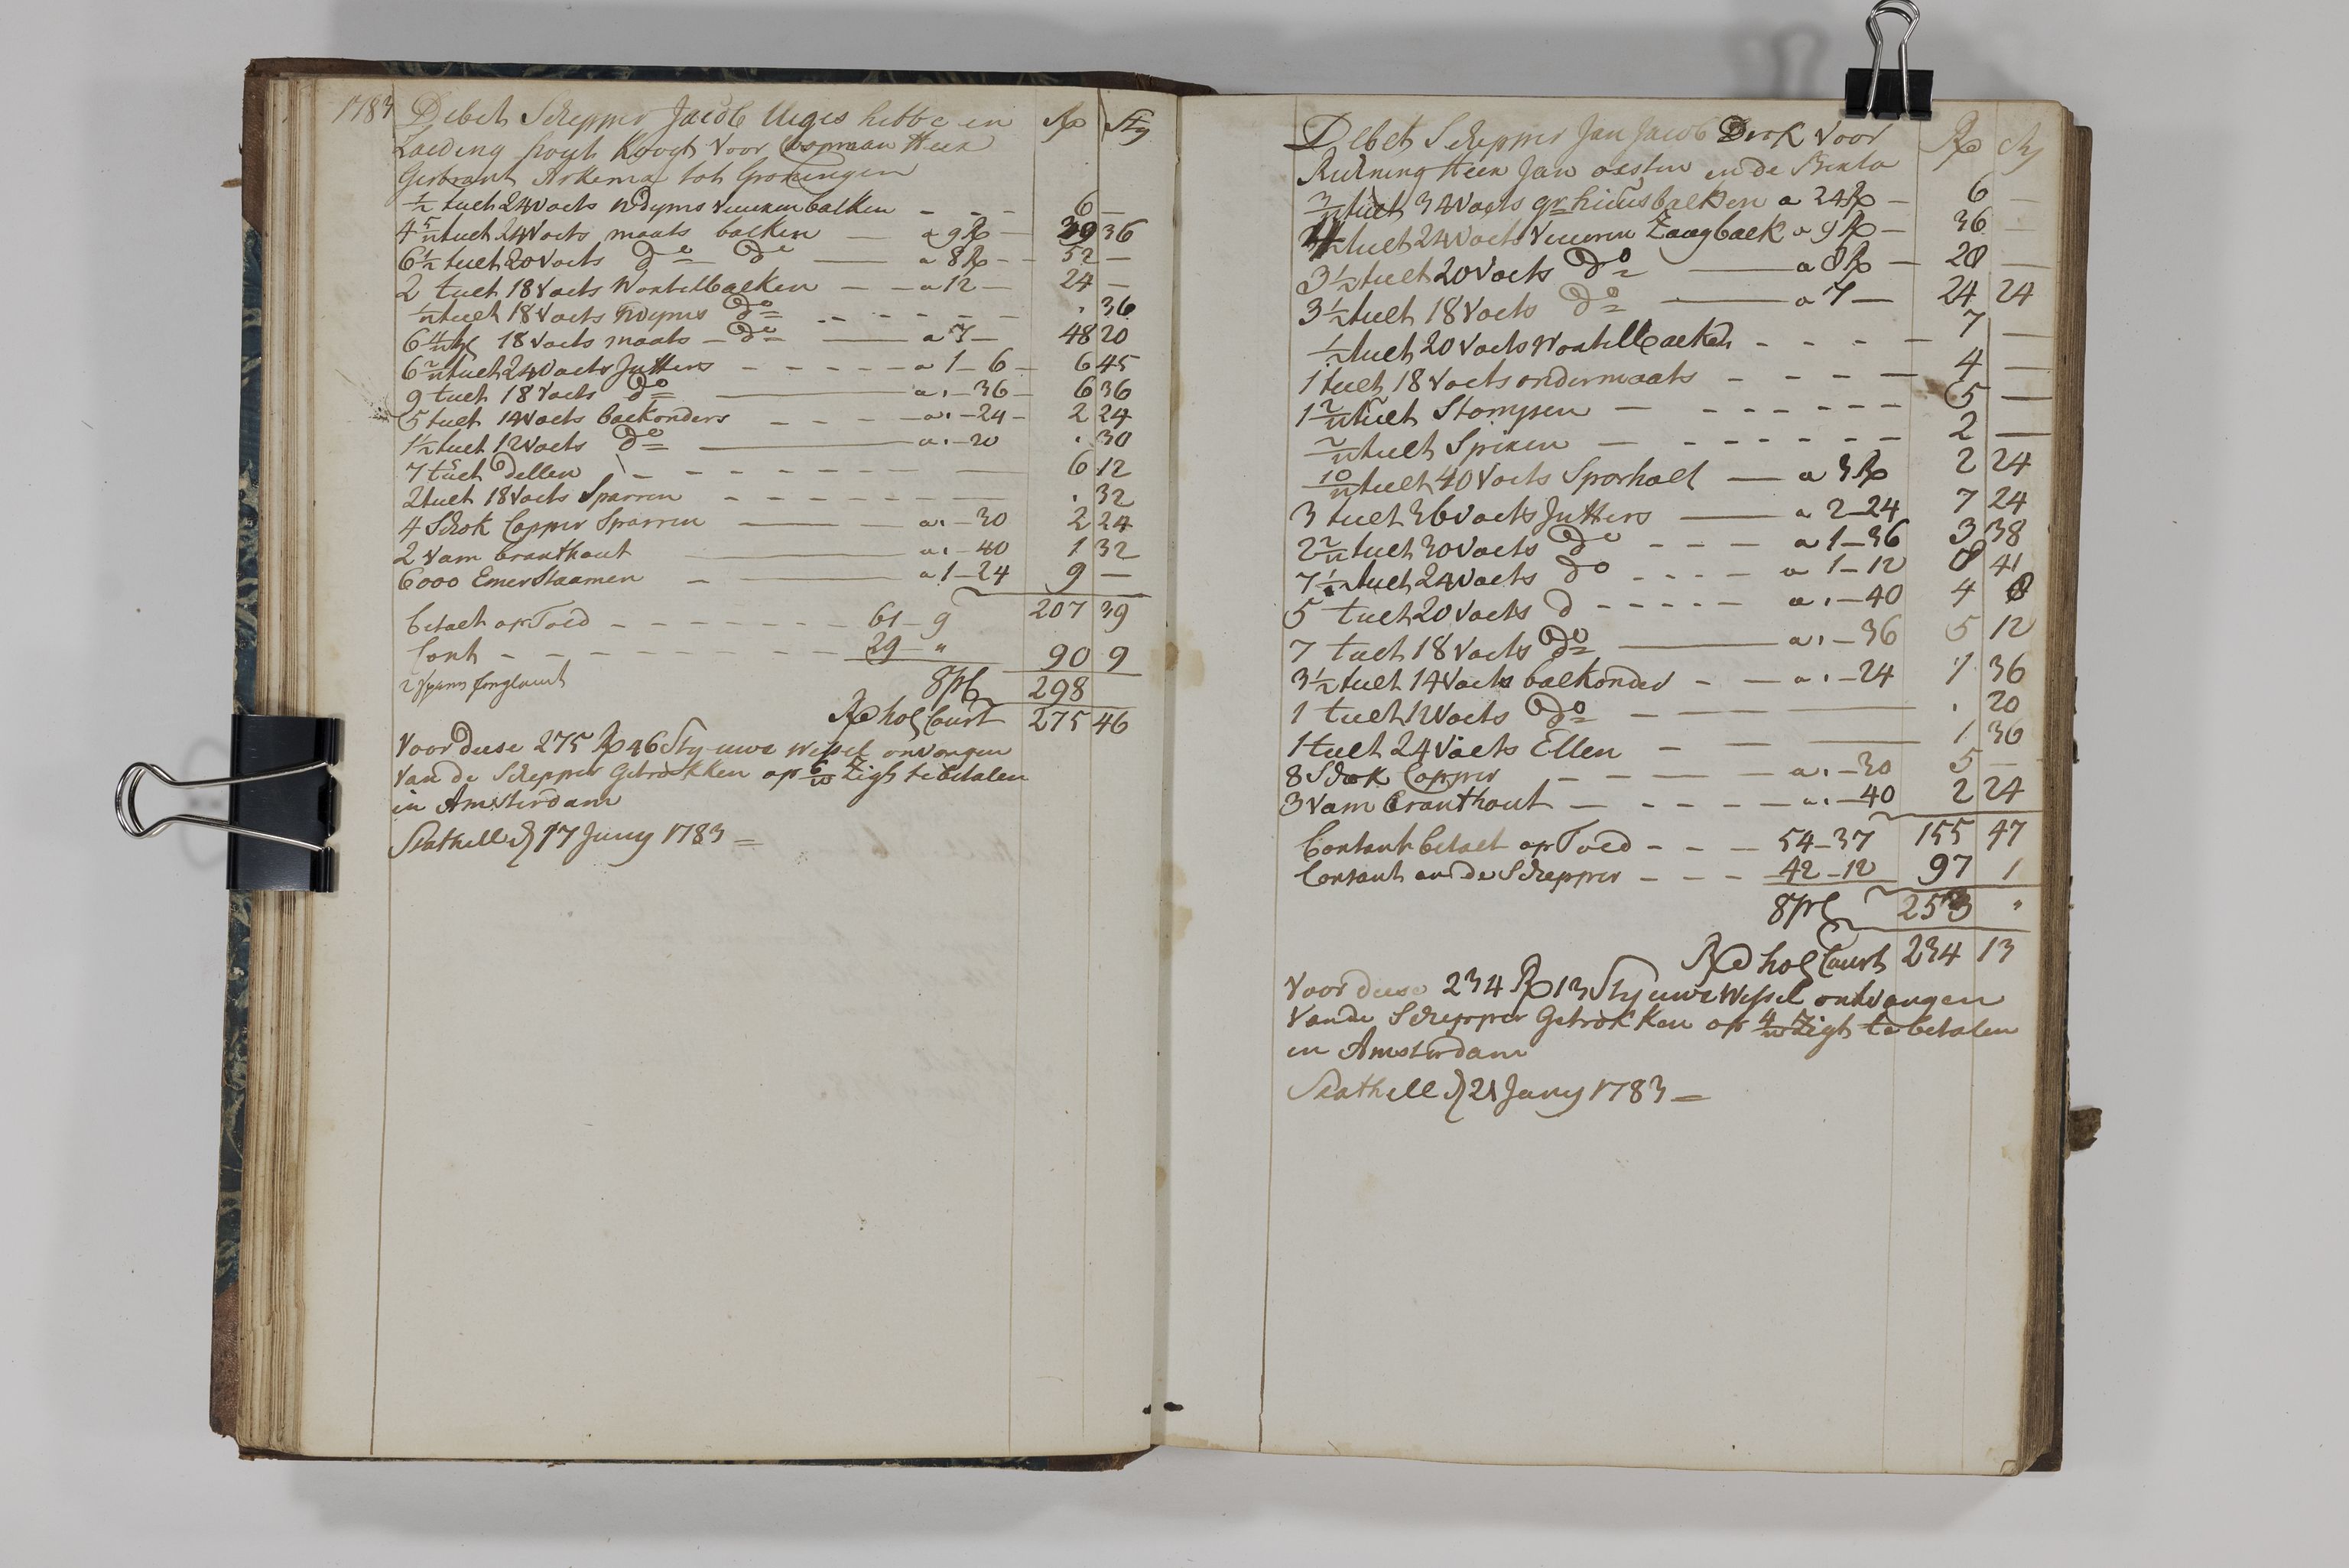 1783 Debet Schepper Jacob Uiges hebbe in Rdr Sty
Laeding hout Kogt voor Coopman Heer
Gerbrant Arkema tot Groningen
1/2 tuelt 24 Voets ndyms Vuuren balken - - - 6 -
4 5/12 tuelt 24 Voets maats balken — a 9 R — 39 36
6 1/2 tuelt 20 Voets do do — a 8 R - - 52 —
2 tuelt 18 Voets Wonkelbalken — — a 12 — 24 —
1/12 tuelt 18 Voets ndyms do - - - - - . 36
6 11/12 18 Voets maats — do — a 7 — 48 20
6 2/12 tuelt 24 Voets Jutters - - - - - - a 1 — 6 — 6 45
9 tuelt 18 Voets do — a . — 36 — 6 36
5 tuelt 14 Voets balkonders - - - - a . — 24 — 2 24
1 1/2 tuelt 12 Voets do — a . — 20 . 30
7 tuelt Dellen - - - - - - - — 6 12
2 tuelt 18 Voets Sparren - - - - - - — . 32
4 Schok Copper Sparren — — a . — 30 2 24
2 Vam branthout — a . — 40 1 32
6000 Emer Staamen — — a 1 — 24 9 —
207 39
betaelt op Toed - - - - - - - - 61 — 9
Cont - - - - - - - - - - 29 — " 90 9
8 pC 298
Rd hol Court 275 46
Voor duse 275 R 46 Sty uwe Wessel ontvangen
Van de Schepper Getrokken op 6/w Zigt te betalen
in Amsterdam
17 Juny 1783 =
Debet Schepper Jan Jacob Drok Voor R Sty
Rekning Heer Jan oesten en de Bexla
3/12 tuelt 34 Voets gr huusbalken a 24 R — 6 —
4 tuelt 24 Voets Vuuren Zaagbalk a 9 R — 36 —
3 1/2 tuelt 20 Voets do — a 8 R — 28 —
3 1/2 tuelt 18 Voets do — a 7 — 24 24
1/2 tuelt 20 Voets Wonkelbalken - - - - 7 —
1 tuelt 18 Voets ondermaats - - - - 4 —
1 2/12 tuelt Stompsen — - - - - - - 5 —
2/12 tuelt Spieren — - - - - - - 2 —
10/12 tuelt 40 Voets Sporholt — a 3 R 2 24
3 tuelt 36 Voets Jutters — a 2 — 24 7 24
2 2/12 tuelt 30 Voets do - - - a 1 — 36 3 38
7 1/12 tuelt 24 Voets do - - - - a 1 — 12 8 41
5 tuelt 20 Voets d - - - - - a . — 40 4 8
7 tuelt 18 Voets do — a . — 36 5 12
3 1/2 tuelt 14 Voets balkonder — — a . — 24 1 36
1 tuelt 12 Voets do — — — . 20
1 tuelt 24 Voets Ellen — — — 1 36
8 Schok Copper — — — — a . — 30 5 —
3 Vam branthout — - - - — a . — 40 2 24
155 47
Contant betaelt op Toed - - - 54 — 37
Contant an de Schepper - - - 42 — 12 97 1
8 pC 253 "
Rd hol Court 234 13
Voor duse 234 R 13 Sty uwe Wessel ontvangen
Van de Schepper Getrokken op 4/w Zigt te betalen
in Amsterdam
21 Juny 1783 =